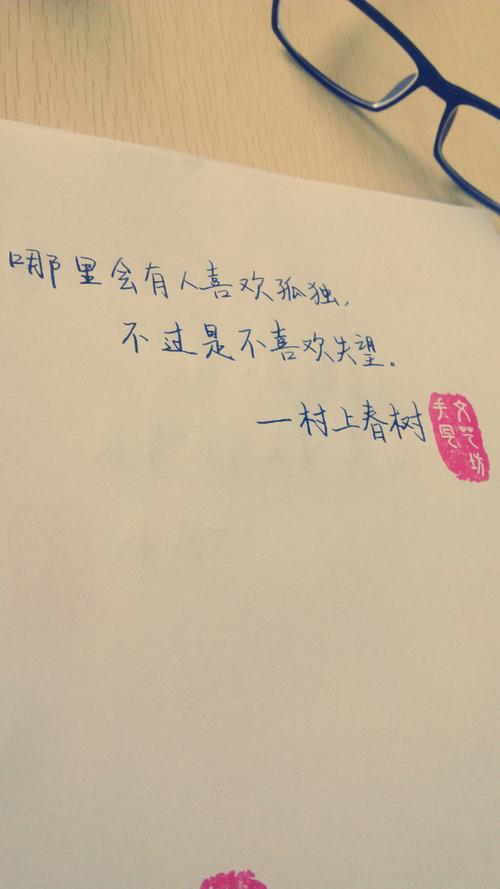 哪里会有人喜欢孤独,
不过是不喜欢失望。
—村上春树